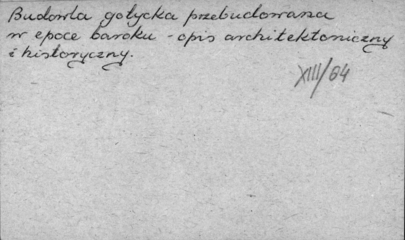 Budowla gotycka przebudowana
w epoce baroku - opis architektoniczny
i historyczny.
XIII/84